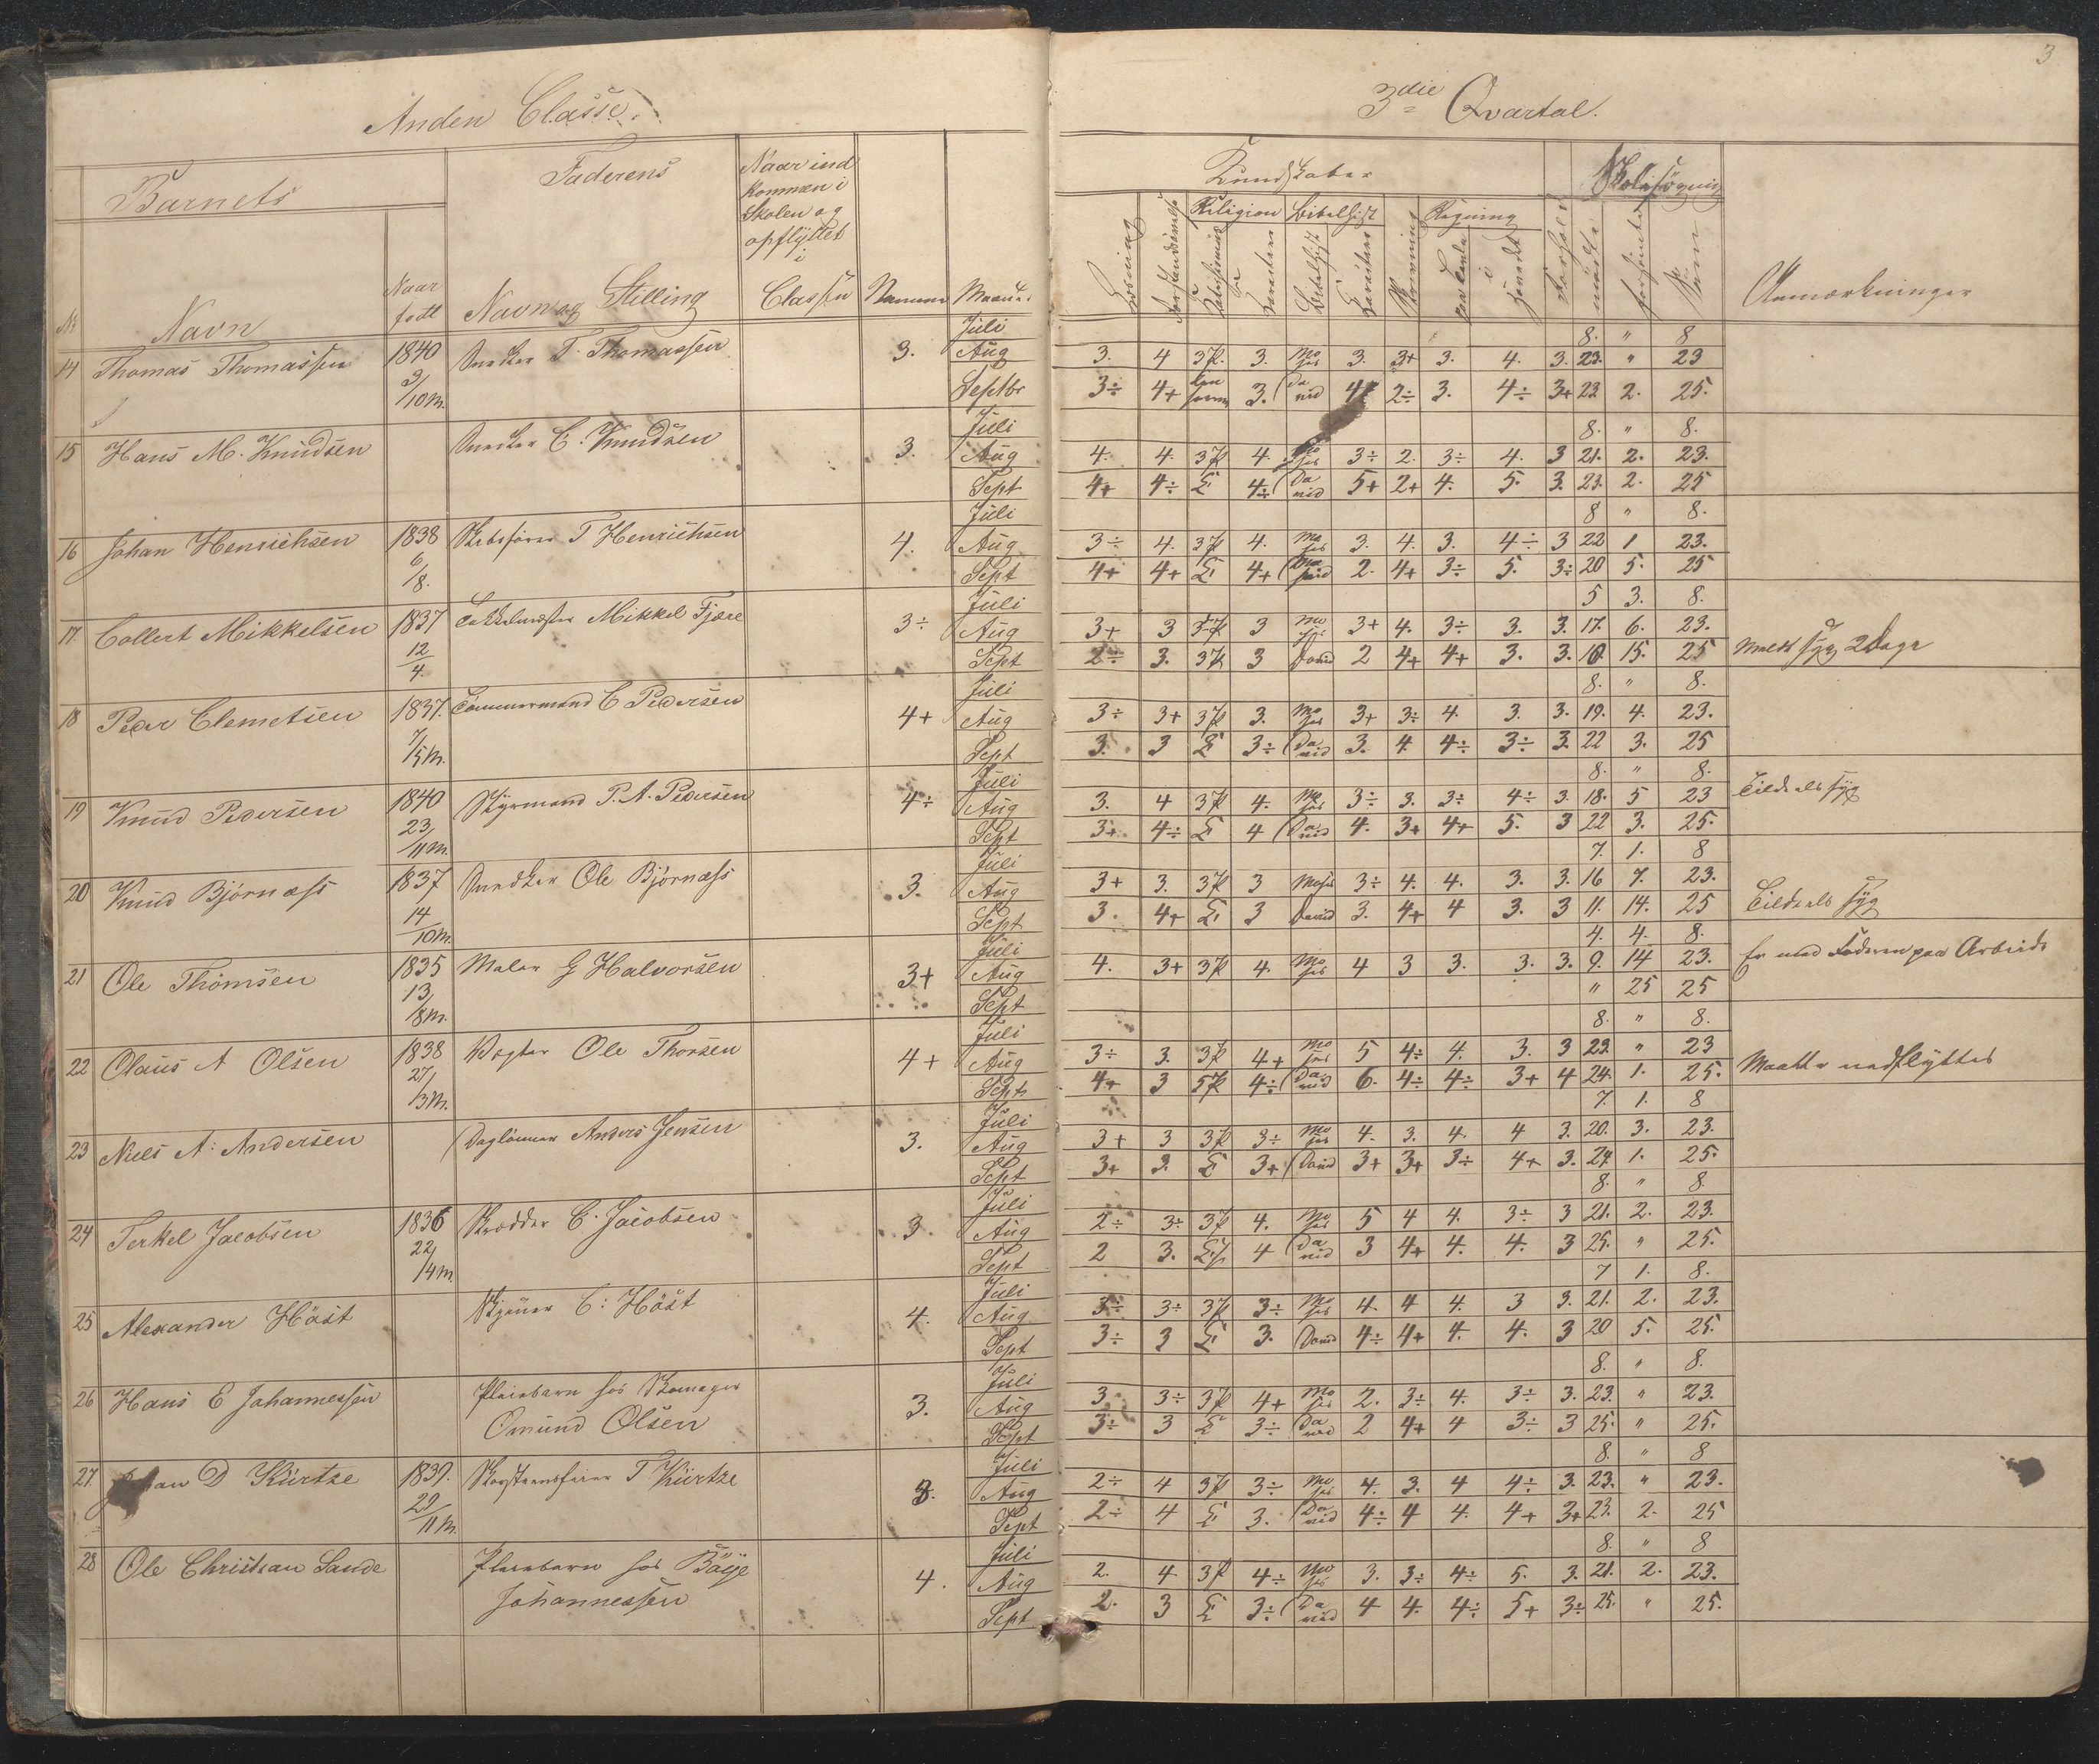 3
Anden Classe.
3die Qvartal.
Barnets
Faderens
Naar ind
kommen i
Skolen og
opflyttet
i
Classen
Kundskaber
Skolesögning
Religion Bibelhist
Regning
Nr Navn Naar født Navn og Stilling Maanet
Læsning
Skrivning
i
Hovedet
mødt
forsømt
Sum
Anmærkninger
Juli 8. " 8
14 Thomas Thomassen 1840 Snedker T. Thomassen 3. Aug 3. 4 3P. 3. Mo ses 3. 3+ 3. 4. 3. 23. " 23
9/10 M. Septbr 3÷ 4+ 3. Da vid 2÷ 3. 4÷ 3+ 23 2. 25.
Juli 8. " 8.
15 Hans M. Knudsen Snedker C. Knudsen 3. Aug 4. 4. 3P 4. Mo ses 3÷ 2. 3÷ 4. 3 21. 2. 23.
Sept 4+ 4÷ 4÷ Da vid 5+ 2+ 4. 5. 3. 23. 2. 25
Juli 8 " 8.
16 Johan Henrichsen 1838 Skibsfører T Henrichsen 4. Aug 3÷ 4. 3P 4. Mo ses 3. 4. 3. 4÷ 3 22 1 23.
6/8. Sept 4+ 4+ 4+ 2. 4+ 3÷ 5. 3÷ 20 5. 25
Juli 5 3. 8.
17 Collert Mikkelsen 1837 Mikkel Fjære 3÷ Aug 3+ 3 3 Mo ses 3+ 4. 3÷ 3. 3. 17. 6. 23.
12/4. Sept 2÷ 3. 3P 3 David 2 4+ 4+ 3. 3. 10. 15. 25 Meldt syg 2 Dage
Juli 8. " 8.
18 Peder Clemetsen 1837. Tømmermand C Pedersen 4+ Aug 3÷ 3+ 3P 3. Mo ses 3+ 3÷ 4. 3. 3. 19. 4. 23.
7/5 M. Sept 3. 3 3÷ Da vid 3. 4. 4÷ 3÷ 3. 22 3. 25
Juli 8. " 8.
19 Knud Pedersen 1840 Styrmand P. A. Pedersen 4÷ Aug 3. 4 3P 4. Mo ses 3÷ 3. 3÷ 4÷ 3. 18. 5 23 Tildels syg
23/11 M. Sept 3+ 4÷ 4 Da vid 4. 3+ 4+ 5. 3 22 3. 25.
Juli 7. 1. 8
20 Knud Bjørnæss 1837 Snedker Ole Bjørnæss 3. Aug 3+ 3. 3P 3 Moses 3÷ 4. 4. 3. 3. 16 7. 23.
14/10 M. Sept 3. 4+ 3 David 3. 4+ 4 3. 3 11. 14. 25 Tildels syg
Juli 4. 4. 8.
21 Ole Thomsen 1835 Maler G Halvorsen 3+ Aug 4. 3+ 3P 4. Mo ses 4 3 3. 3. 3. 9. 14 23. Er med Faderen paa Arbeide
13/8 M. Sept " 25 25
Juli 8. " 8.
22 Olaus A Olsen 1838 Vægter Ole Thorsen 4+ Aug 3÷ 3. 3P 4+ Mo ses 5 4÷ 4. 3. 3 23. " 23
27/3 M. Sept 4+ 3 5P 4÷ Da vid 6. 4÷ 4÷ 3+ 4 24. 1. 25. Maatte nedflyttes
Juli 7. 1. 8
23 Niels A. Andersen Daglønner Anders Jensen 3. Aug 3+ 3 3P 3÷ Mo ses 4. 3. 4. 4 3. 20. 3. 23.
Sept 3+ 3. 3+ David 3+ 3+ 3÷ 4+ 3. 24 1. 25.
Juli 8. " 8.
24 Terkel Jacobsen 1836 Skrædder C. Jacobsen 3. Aug 2÷ 3÷ 3P 4. Mo ses 5 4 4. 3÷ 3 21. 2. 23.
22/4 M. Sept 2 3. 4 Da vid 3 4+ 4. 4. 3 25. " 25.
Juli 7 1. 8.
25 Alexander Höst C. Höst 4. Aug 3÷ 3÷ 3P 3÷ Mo ses 4. 4 4. 3 3. 21. 2. 23.
Sept 3÷ 3 3. David 4÷ 4+ 4. 4. 3 20 5. 25.
Juli 8. " 8.
26 Hans E Johannessen Pleiebarn hos Skomager 3. Aug 3 3÷ 3P 4+ Mo ses 2. 3÷ 4. 3÷ 3. 23. " 23.
Omund Olsen Sept 3÷ 3 3÷ Da vid 2 4+ 4 3÷ 3 25. " 25.
Juli 8. " 8
27. D Kürtze 1839. Skorstensfeier T. Kürtze 3. Aug 2÷ 4 3P 3÷ Mo ses 4. 3. 4 4÷ 3. 23. " 23.
29/11 M. Sept 2÷ 4 3. Da vid 4÷ 4 4. 4+ 3+ 23. 2. 25
Juli 8. " 8
28 Ole Christian Sande Pleiebarn hos Böije 4. Aug 2. 4 3P 4÷ Mo ses 3. 3÷ 4÷ 5. 3. 21. 2. 23.
Johannessen Sept 2. 3 3÷ Da vid 4 4. 4÷ 5+ 3÷ 25. " 25.